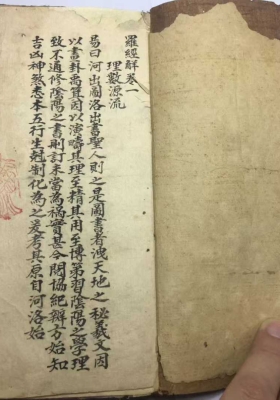 羅經解卷一
理數源流
易曰河出圖洛出書聖人則之是圖書者洩天地之秘義文因
以書卦禹箕因以演疇其理至精其用至博第習陰陽之學理
致不通修陰陽之書則訂未當為禍實甚今閱協紀辯方始知
吉凶神煞悉本五行生剋制化為之爰考其原自河洛始